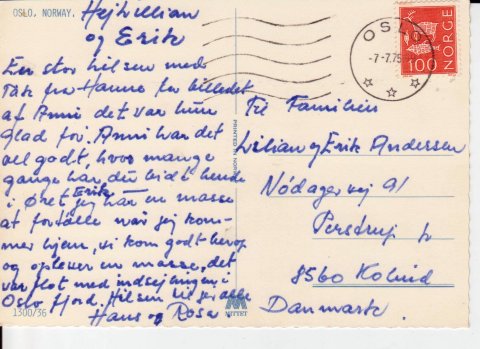 OSLO, NORWAY.
Hej Lillian
og Erik
En stor hilsen med
Tak fra Hanne for billedet
af Anni det var hun
glad for. Anni har det
vel godt, hvor mange
gange har du bidt hende
i Øret Erik jeg har en masse
at fortälle når jeg kom-
mer hjem, vi kom godt herop
og oplever en masse, det
var flot med indsejlingen i
Oslo fjord. Hilsen til jer alle
Hans og Rosa
1300/36
MITTET
PRINTED IN NORWAY
OSLO
-7-7.75
100
NORGE
Til Familien
Lilian og Erik Andersen
Nödagervej 91
Perstrup
8560 Kolind
Danmark.